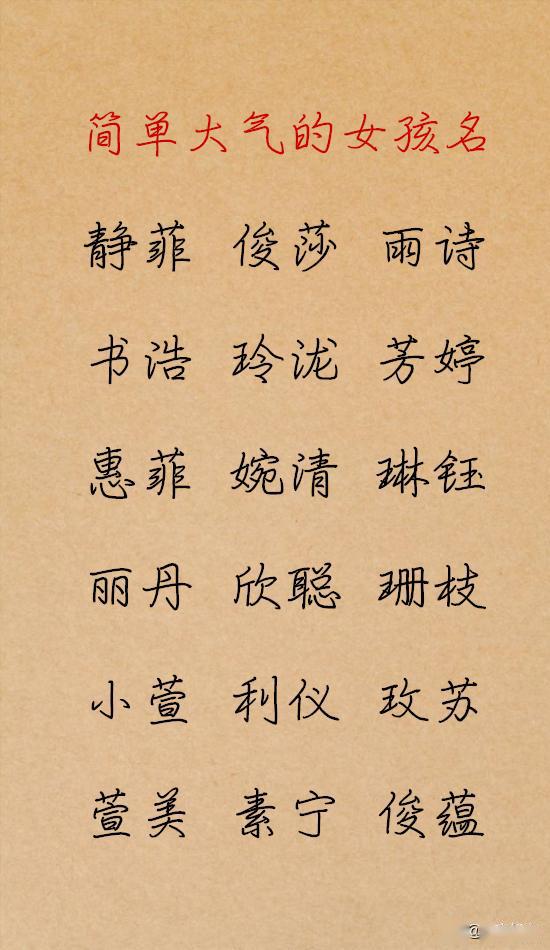 简单大气的女孩名
静菲 俊莎 雨诗
书浩 玲泷 芳婷
惠菲 婉清 琳钰
丽丹 欣聪 珊枝
小萱 利仪 玫苏
萱美 素宁 俊蕴
@